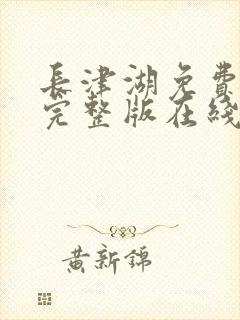 長津湖免費
完整版在綫
黄新錦